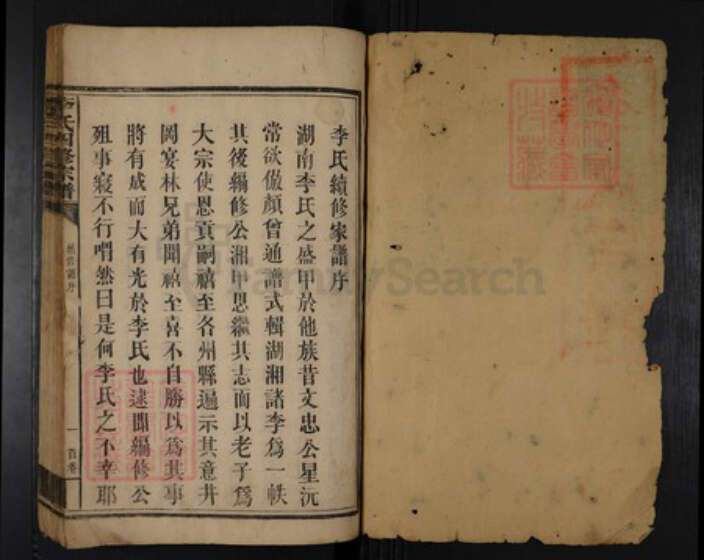 李氏續修家譜序
湖南李氏之盛甲於他族昔文忠公星沅
常欲倣顏曾通譜式輯湖湘諸李爲一帙
其後編修公湘甲思繼其志而以老子爲
大宗使恩貢嗣禧至各州縣遍示其意井
岡宴林兄弟聞禧至喜不自勝以爲其事
將有成而大有光於李氏也逮聞編修公
殂事寢不行喟然曰是何李氏之不幸耶
氏四修宗譜
譜序
一
首卷
FamilySearch